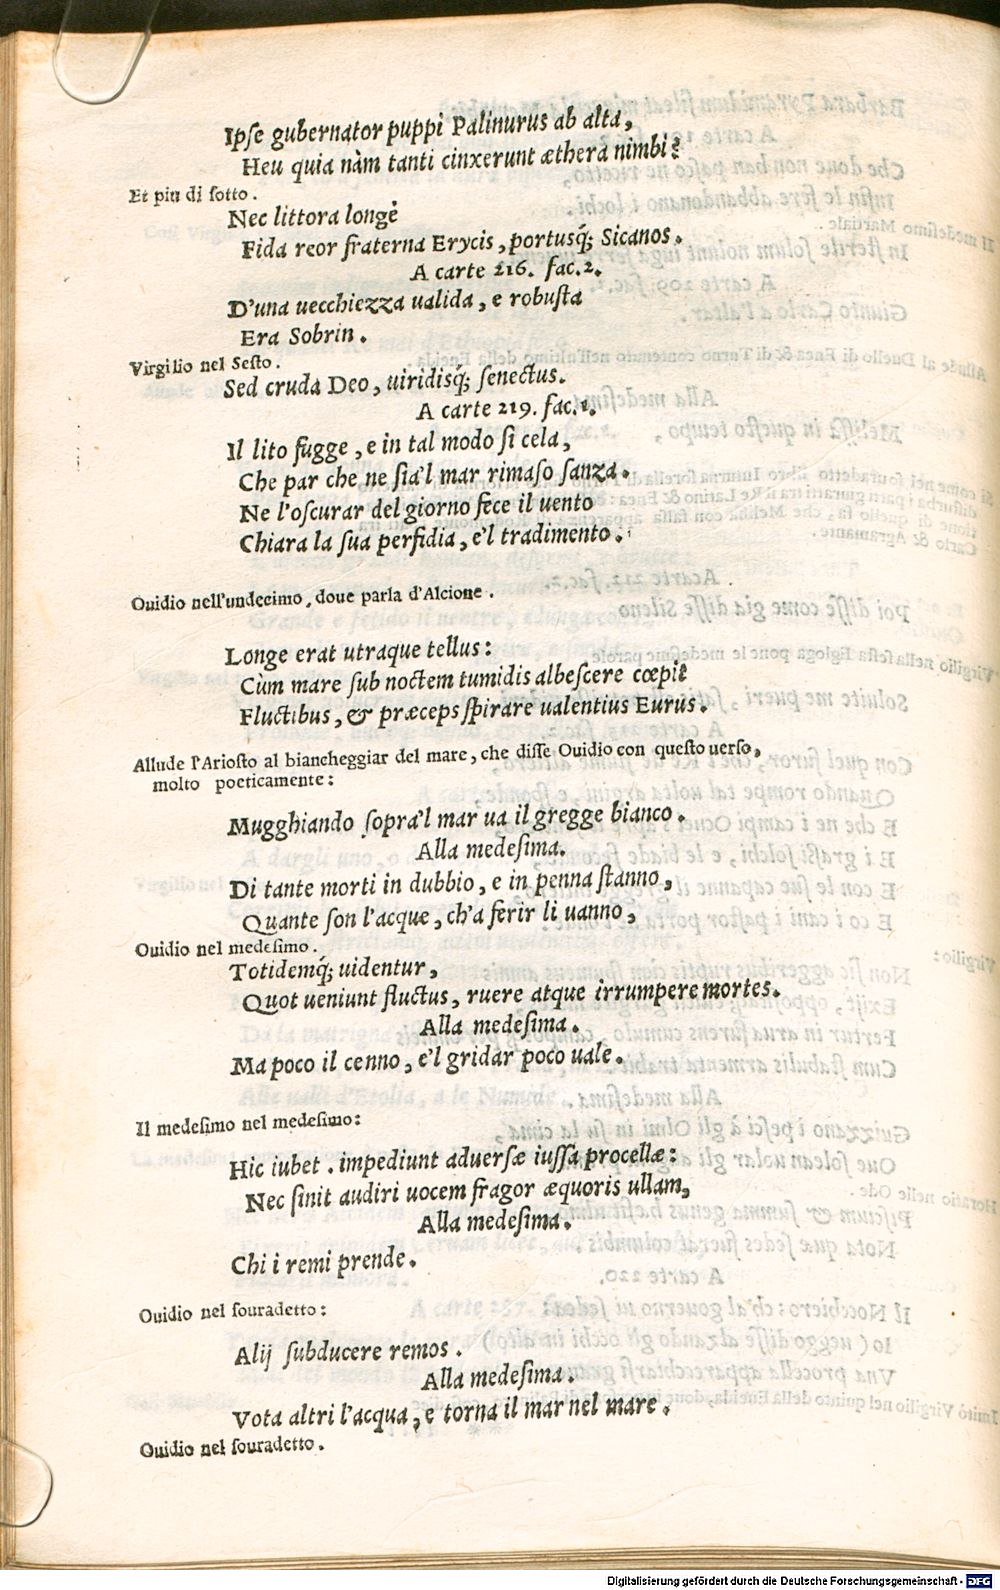 Ipſe gubernator puppi Palinurus ab alta,
Heu quia nàm tanti cinxerunt æthera nimbi?
Et piu di ſotto.
Nec littora longè
Fida reor fraterna Erycis, portusq́; Sicanos.
A carte 216. fac.2.
D'una uecchiezza ualida, e robuſta
Era Sobrin.
Virgilio nel Seſto.
Sed cruda Deo, uiridisq́; ſenectus.
A carte 219. fac.1.
Il lito fugge, e in tal modo ſi cela,
Che par che ne ſia'l mar rimaſo ſanza.
Ne l'oſcurar del giorno fece il uento
Chiara la ſua perfidia, e'l tradimento.
Ouidio nell'undecimo, doue parla d'Alcione.
Longe erat utraque tellus:
Cùm mare ſub noctem tumidis albeſcere cœpit
Fluctibus, & præceps ſpirare ualentius Eurus.
Allude l'Arioſto al biancheggiar del mare, che diſſe Ouidio con queſto uerſo,
molto poeticamente:
Mugghiando ſopra'l mar ua il gregge bianco.
Alla medeſima.
Di tante morti in dubbio, e in penna ſtanno,
Quante ſon l'acque, ch'a ferir li uanno,
Ouidio nel medeſimo.
Totidemq́; uidentur,
Quot ueniunt fluctus, ruere atque irrumpere mortes.
Alla medeſima.
Ma poco il cenno, e'l gridar poco uale.
Il medeſimo nel medeſimo:
Hic iubet. impediunt aduerſæ iuſſa procellæ:
Nec ſinit audiri uocem fragor æquoris ullam,
Alla medeſima.
Chi i remi prende.
Ouidio nel ſouradetto:
Alij ſubducere remos.
Alla medeſima.
Vota altri l'acqua, e torna il mar nel mare.
Ouidio nel ſouradetto.
Digitalisierung gefördert durch die Deutsche Forschungsgemeinschaft - DFG